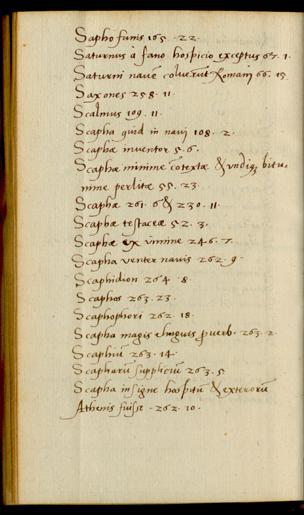 Sapho funis 165 . 22 .
Saturnus à Iano hospicio exceptus 67 . 1 .
Saturni navē coluerūt Romani 66 . 15 .
Saxones 258 . 11 .
Scalmus 109 . 11 .
Scapha quid in navi 108 . 2 .
Scaphæ inventor 5 . 6 .
Scaphæ vimine cōtextæ & undiq; bitu-
mine perlitæ 55 . 23 .
Scaphæ 261 . 6 & 230 . 11 .
Scaphæ testaceæ 52 . 3 .
Scaphæ ex vimine 246 . 7 .
Scapha venter navis 262 . 9 .
Scaphidion 264 . 8 .
Scaphos 263 . 23 .
Scaphophori 262 . 18 .
Scapha magis elinguis proverb . 263 . 2 .
Scaphiū 263 . 14 .
Scapharū supplicium 263 . 5
Scapha insigne hospitū & exterorū
Athenis fuisse . 262 . 10 .